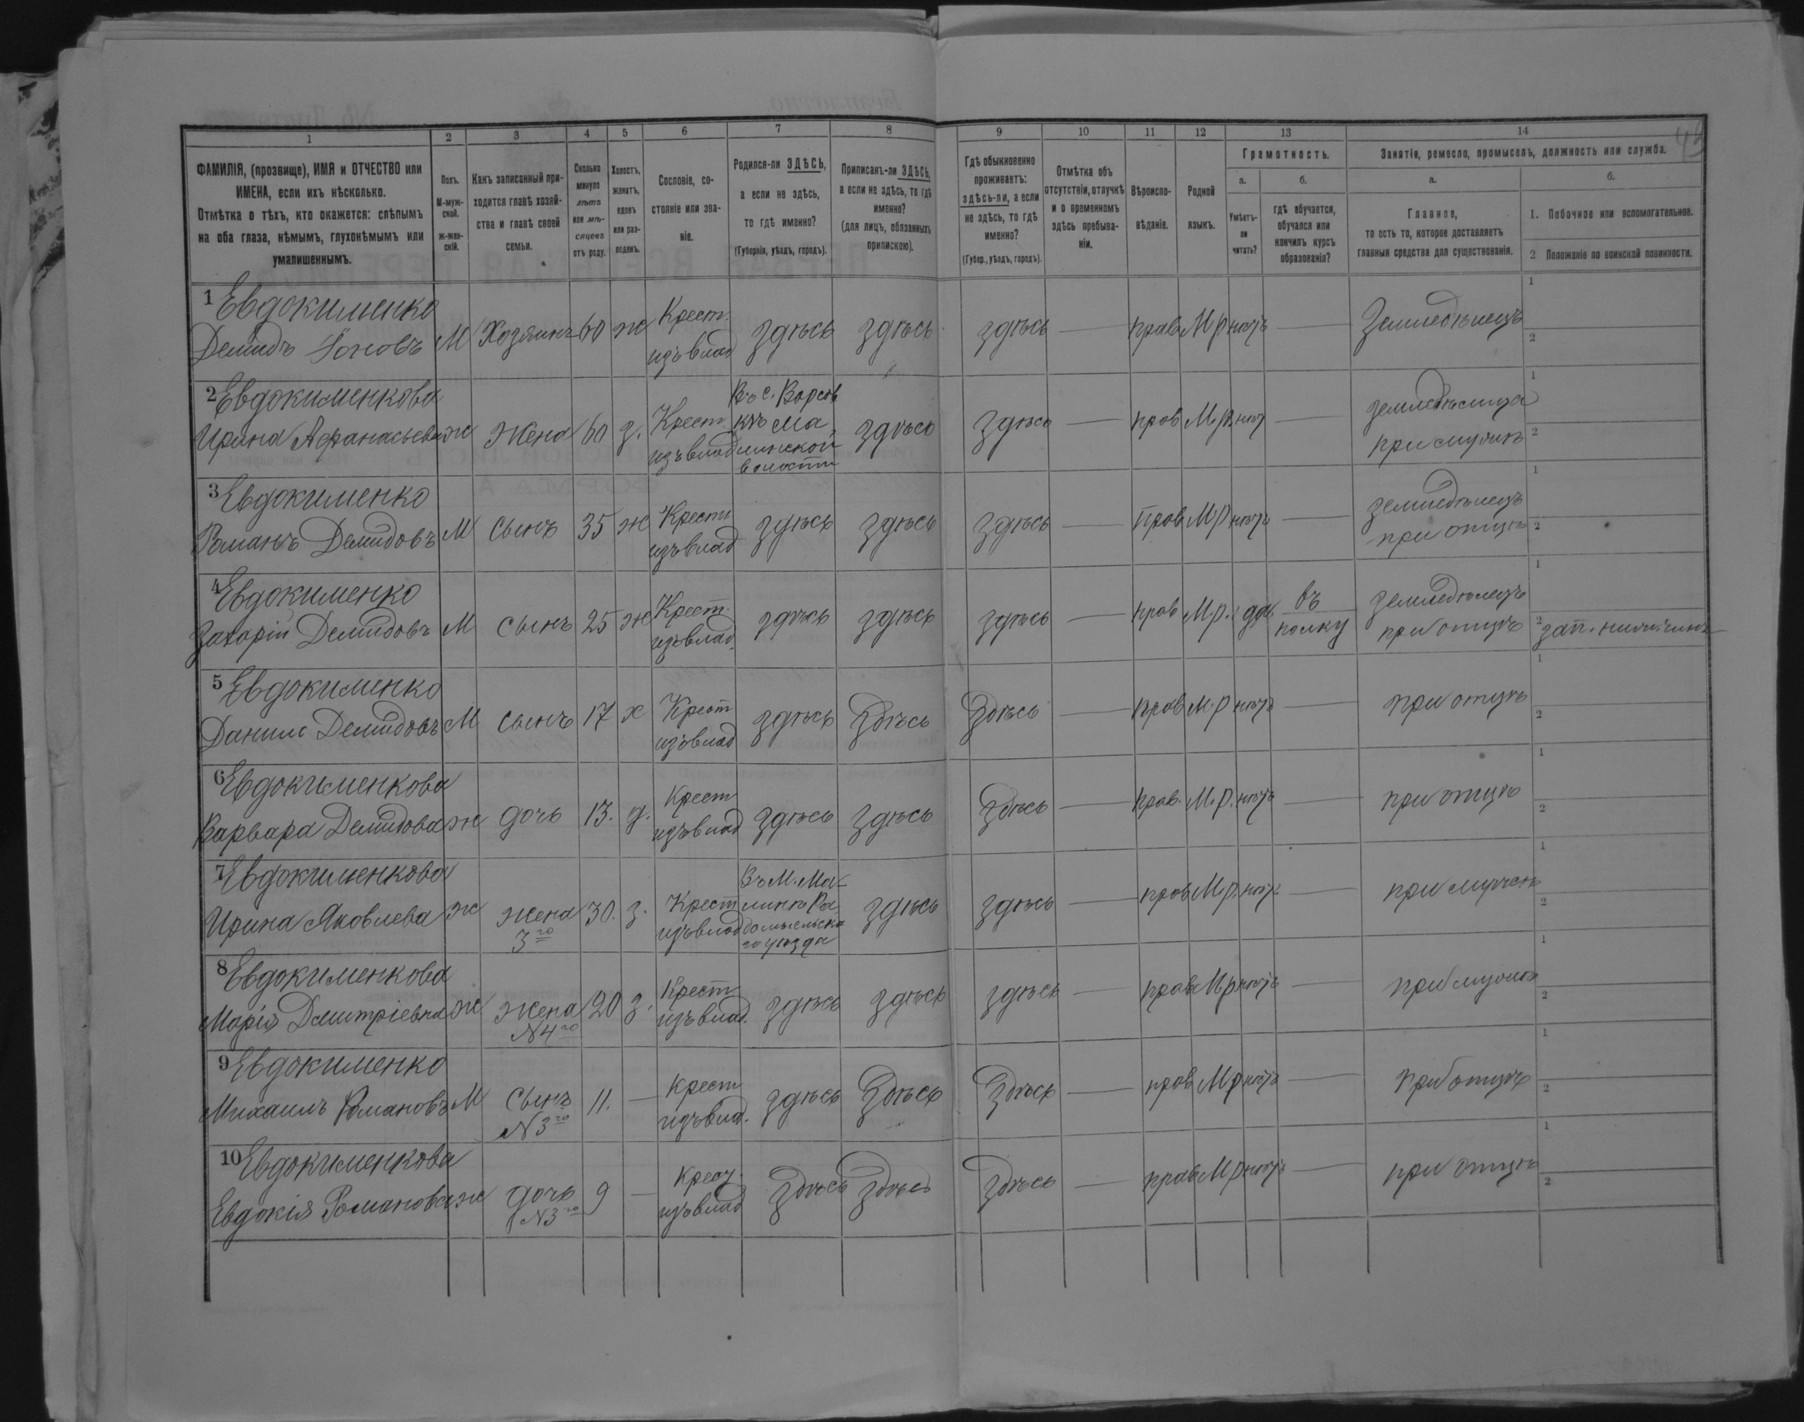 1 2 3 4 5 6 7 8 9 10 11 12 13 14
ФАМИЛІЯ, (прозвище), ИМЯ и ОТЧЕСТВО или
ИМЕНА, если ихъ нѣсколько.
Отмѣтка о тѣхъ, кто окажется: слѣпымъ
на оба глаза, нѣмымъ, глухонѣмымъ или
умалишеннымъ.
Полъ.
М-муж-
ской.
ж-жен-
скій.
Какъ записанный при-
ходится главѣ хозяй-
ства и главѣ своей
семьи.
Сколько
минуло
лѣтъ
или мѣ-
сяцевъ
отъ роду.
Холостъ,
женатъ,
вдовъ
или раз-
веденъ.
Сословіе, со-
стояніе или зва-
ніе.
Родился-ли ЗДѢСЬ,
а если не здѣсь,
то гдѣ именно?
(Губернія, уѣздъ, городъ).
Приписанъ-ли ЗДѢСЬ,
а если не здѣсь, то гдѣ
именно?
(для лицъ, обязанныхъ
припискою).
Гдѣ обыкновенно
проживаетъ:
здѣсь-ли, а если
не здѣсь, то гдѣ
именно?
(Губер., уѣздъ, городъ).
Отмѣтка объ
отсутствіи, отлучкѣ
и о временномъ
здѣсь пребыва-
ніи.
Вѣроиспо-
вѣданіе.
Родной
языкъ.
Грамотность.
а.
Умѣетъ-
ли
читать?
б.
гдѣ обучается,
обучался или
кончилъ курсъ
образованія?
Занятіе, ремесло, промыселъ, должность или служба.
а.
Главное,
то есть то, которое доставляетъ
главныя средства для существованія.
б.
1. Побочное или вспомогательное.
2 Положеніе по воинской повинности.
1 Евдокименко
Демидъ Іоновъ М Хозяинъ 60 ж Крест. изъ влад здѣсь здѣсь здѣсь — прав М.р нѣтъ — Земледѣлецъ
2 Евдокименкова
Ирина Афанасьева ж Жена 60 з. Крест. изъ влад
Въ с.
Ма
линской
волости
здѣсь здѣсь — прав М.р. нѣт —
земледѣлица
при мужѣ
3 Евдокименко
Романъ Демидовъ М сынъ 35 ж Крест изъ влад здѣсь здѣсь здѣсь — Прав М.р нѣтъ —
земледѣлецъ
при отцѣ
4 Евдокименко
Захарій Демидовъ М сынъ 25 ж Крест. изъ влад. здѣсь здѣсь здѣсь — прав М.р. да
въ
полку
земледѣлецъ
при отцѣ
2 зап.
5 Евдокименко
Данило Демидовъ М сынъ 17 х Крест изъ влад здѣсь Здѣсь Здѣсь — прав М.р нѣтъ — при отцѣ
6 Евдокименкова
Варвара Демидова ж дочь 13. д. Крест изъ влад здѣсь здѣсь Здѣсь — прав. М.р. нѣтъ — при отцѣ
7 Евдокименкова
Ирина Яковлева ж жена 3го 30. з. Крест изъ влад
Въ М. Ма-
линѣ Ра
домысльска
го уѣзда
здѣсь здѣсь — прав М.р. нѣтъ — при мужѣ
8 Евдокименкова
Марія Дмитріевна ж жена N4го 20 з. Крест изъ влад. здѣсь здѣсь здѣсь — прав М.р нѣтъ — при мужѣ
9 Евдокименко
Михаилъ Романовъ М сынъ N3го 11. — Крест изъ влад. здѣсь Здѣсь Здѣсь — прав М.р нѣтъ — при отцѣ
10 Евдокименкова
Евдокія Романова ж дочь N3го 9 — Крест изъ влад Здѣсь Здѣсь Здѣсь — прав М.р нѣтъ — при отцѣ